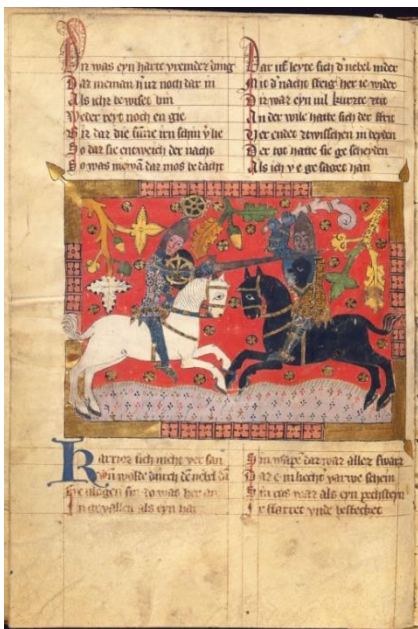 Diz was eyn harte vremder ding
Dar nieman h'uz noch dar in
Als ich bewiset bin
Weder reyt noch en gie
Biz dar die sunne irn schin v'lie
So dar sie entweich der nacht
So was dar mos bedacht
Dar uf leyte sich d' nebel nider
Mit d' nacht steig her wider
Diz war eyn vil kurtze zit
An der wile hatte sich der strit
Verendet zwisschen in beyden
Der tot hatte sie gescheyden
Als ich v e gesaget han
Karrioz sich nicht ver san
wolde durch dē nebel
so was her an
In gevallen als eyn han
Sin wape dar war allez swarz
Dar ein liecht varwe schein
Sin ros war als eyn pechsteyn
vnde bestecket